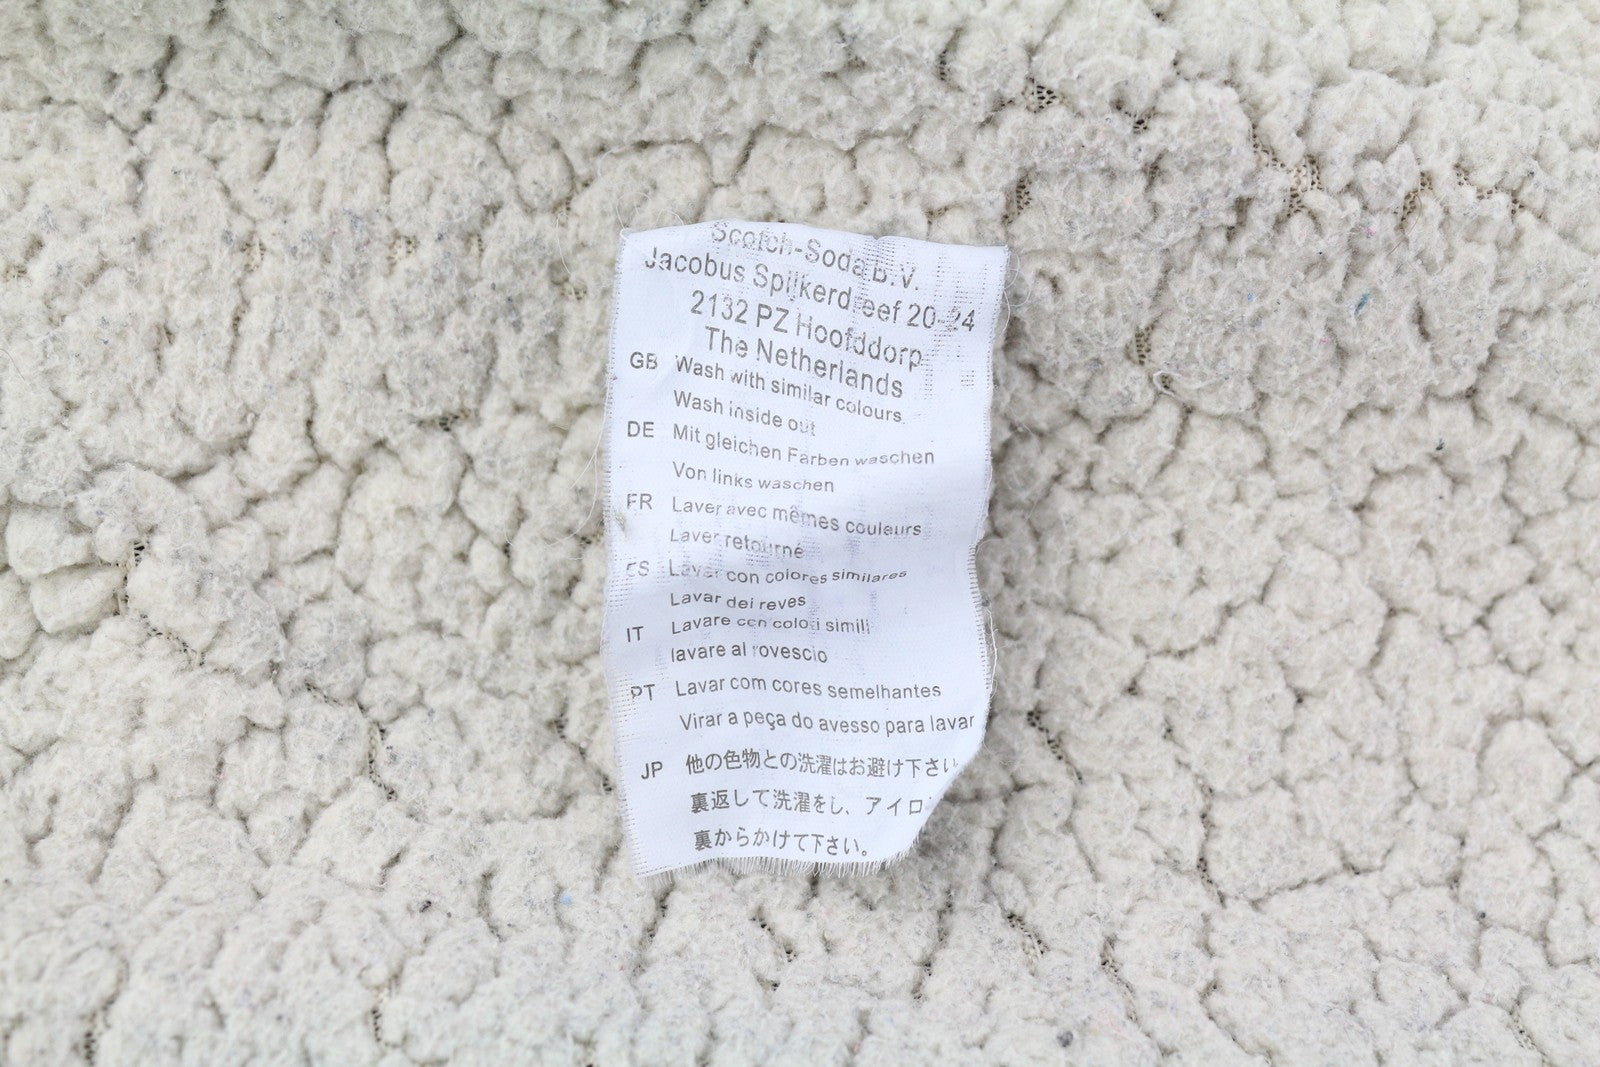 Scotch-Soda B.V.
Jacobus Spijkerdreef 20-24
2132 PZ Hoofddorp
The Netherlands
GB Wash with similar colours
Wash inside out
DE Mit gleichen Farben waschen
Von links waschen
FR Laver avec mêmes couleurs
Laver retourné
ES Lavar con colores similares
Lavar del reves
IT Lavare con colori simili
lavare al rovescio
PT Lavar com cores semelhantes
Virar a peça do avesso para lavar
JP 他の色物との洗濯はお避け下さい
裏返して洗濯をし、アイロ
裏からかけて下さい。